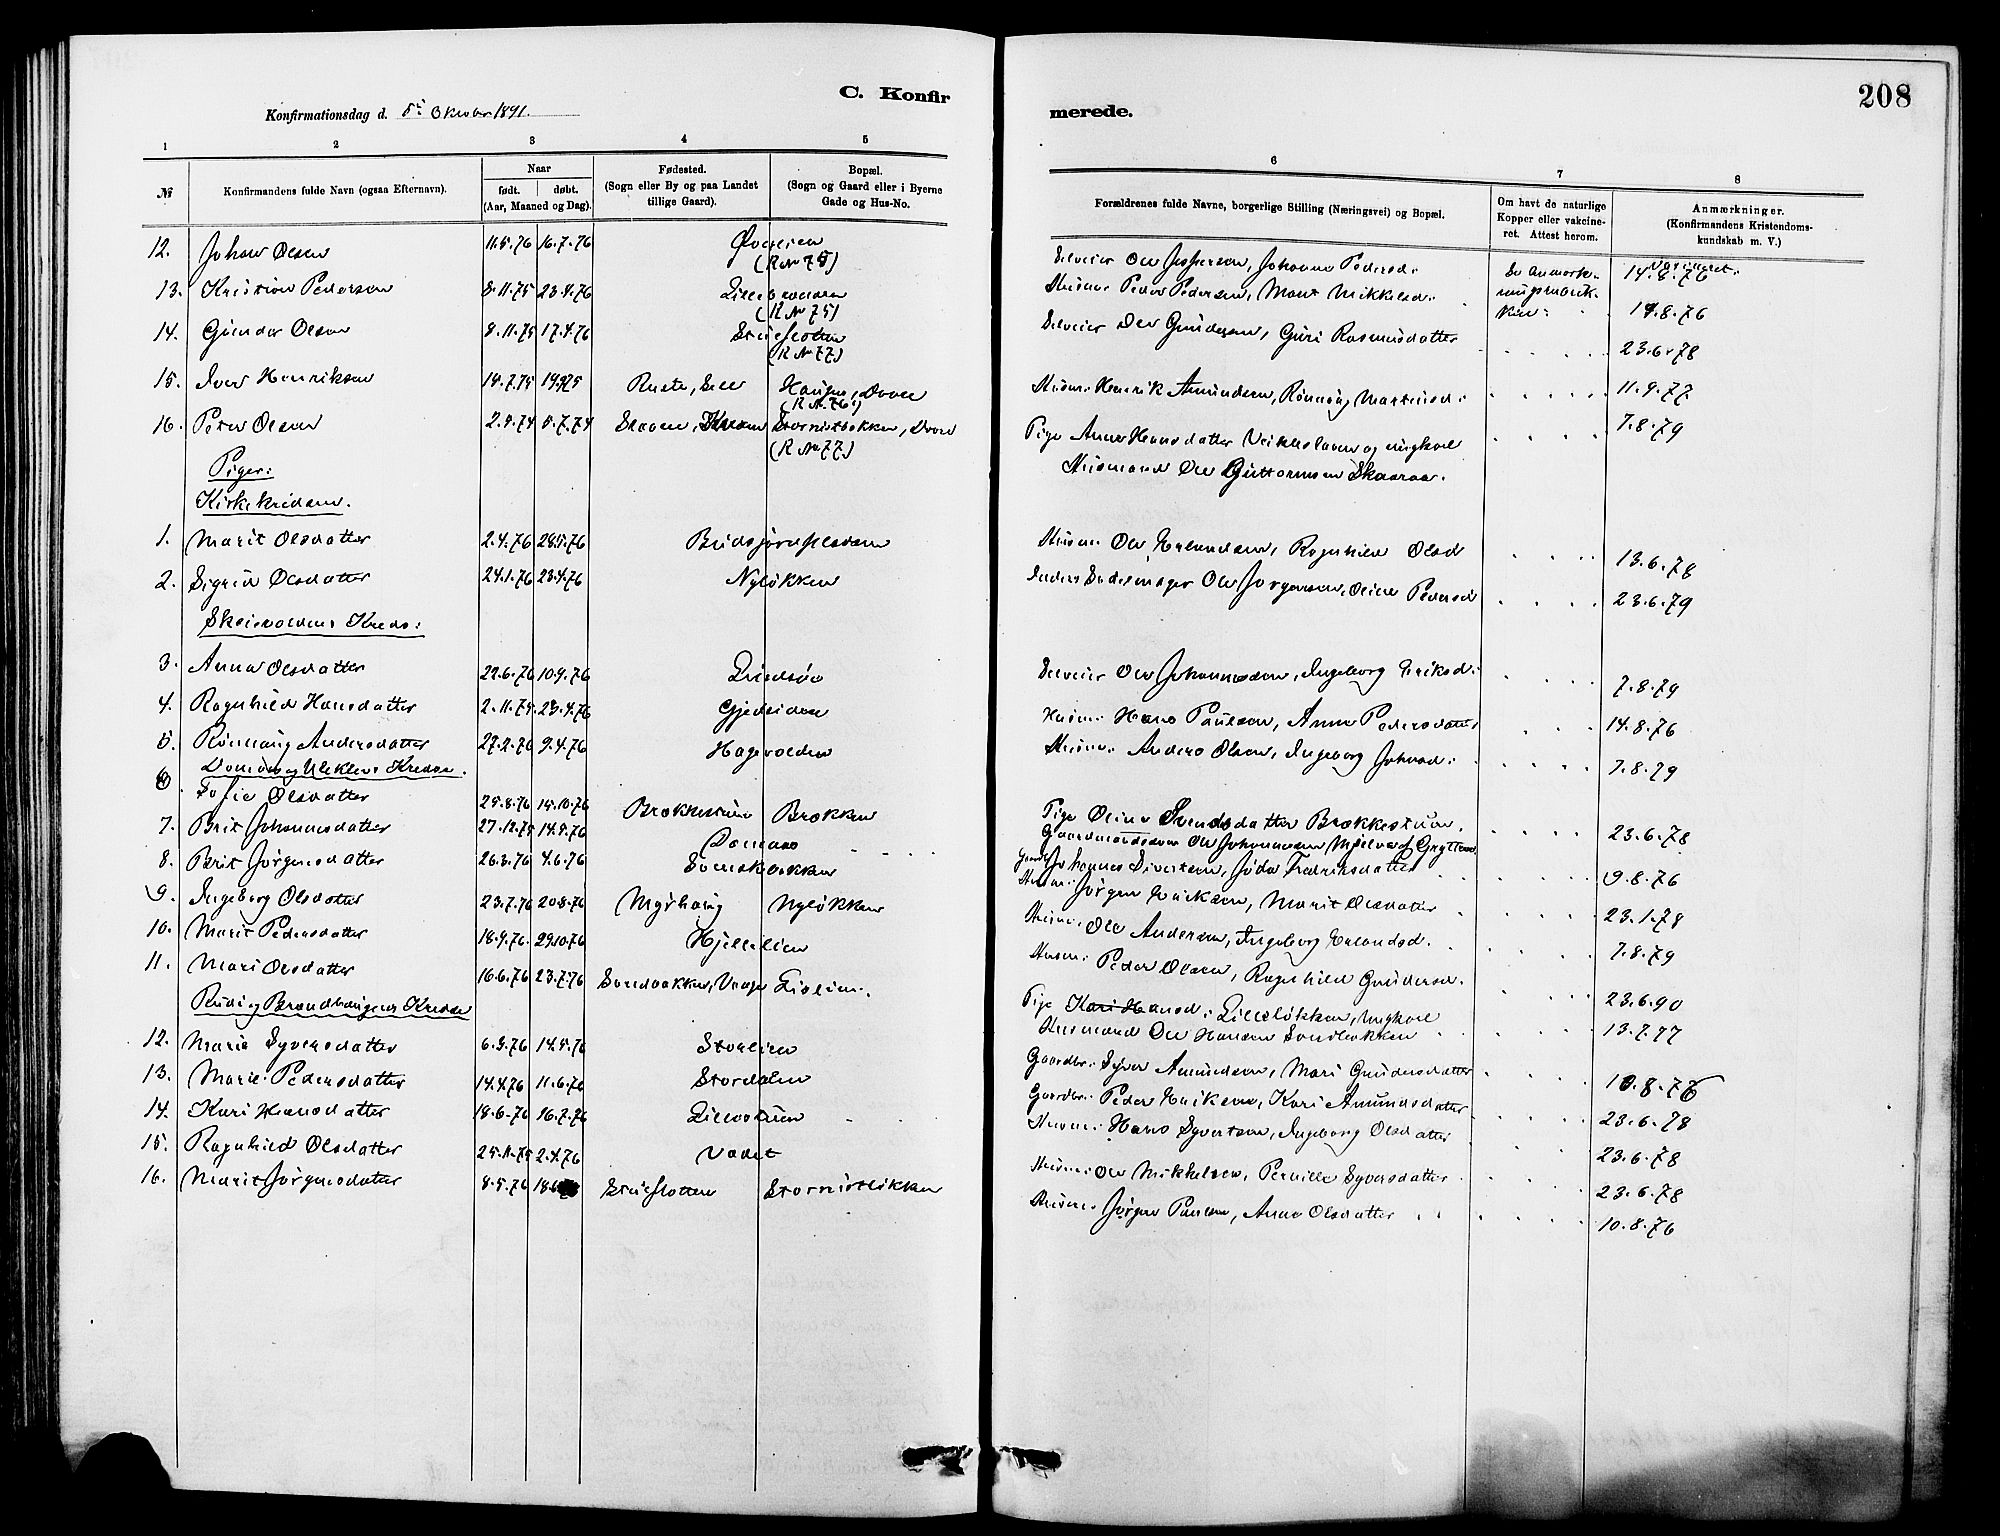 208
C. Konfir
merede.
Konfirmationsdag d. 5te Oktober 1891.
1 2 3 4 5
6 7 8
№ Konfirmandens fulde Navn (ogsaa Efternavn). Naar født. døbt. (Aar, Maaned og Dag). Fødested. (Sogn eller By og paa Landet tillige Gaard). Bopæl. (Sogn og Gaard eller i Byerne Gade og Hus-No.
Forældrenes fulde Navne, borgerlige Stilling (Næringsvei) og Bopæl. Om havt de naturlige Kopper eller vakcineret. Attest herom. Anmærkninger. (Konfirmandens Kristendomskundskab m. V.)
12. Johan Olsen 11.5.76 16.7.76 Øverlien (R № 75) Selveier Ole Jespersen, Johanne Pedersd: Se Anmærkningsrubrikken: Vaccineret: 14.8.76
13. Kristian Pedersen 8.11.75 23.4.76 (R № 75) Husm: Peder Pedersen, Marit Mikkelsd: 19.8.76
14. Gunder Olsen 8.11.75 17.4.76 (R № 77) Selveier Ole Gundersen, Guri Rasmusdatter 23.6.78
15. Iver Henriksen 14.7.75 Ruste, Sell Haugen, Dovre (R № 76) Husm: Henrik Amundsen, Rønnaug Mortensd: 11.9.77
16. Peter Olsen 5.7.74 Stornistløkken, Dovre (R № 77) Pige Anne Hansdatter og ungkarl Husmand Ole Guttormsen Skaaraa. 7.8.79
Piger:
Kirkekredsen.
1. Marit Olsdatter 2.4.76 28.5.76 Husm: Ole Erlandsen, Ragnhild Olsd 13.6.78
2. Sigrid Olsdatter 24.1.76 23.4.76 Nyløkken Ole Jørgensen, Oline Pedersd 23.6.79
Skeievoldens Kreds:
3. Anna Olsdatter 22.6.76 10.9.76 Lindsøe Selveier Ole Johannesen, Ingeborg Eriksd: 7.8.79
4. Ragnhild Hansdatter 2.11.75 23.4.76 Gjedsiden Husm: Hans Paulsen, Anne Pedersdatter 14.8.76
5. Rønnaug Andersdatter 27.2.76 9.4.76 Hagevolden Husm: Anders Olsen, Ingeborg Johnsd: 7.8.79
Domaas og Ulekleivs Kredse.
6. Sofie Olsdatter 25.8.76 15.10.76 Brækkestuen Brækken Pige Oline Svendsdatter Brækkestuen, Gaardmandssøn Ole Johannesen Mjelva i Grytten 23.6.78
7. Brit Johannesdatter 27.12.75 Domaas Gaardbr Johannes Sivertsen, Jøda Fredriksdatter 9.8.76
8. Brit Jørgensdatter 26.3.76 4.6.76 Husm: Jørgen Eriksen, Marit Olsdatter 23.1.78
9. Ingeborg Olsdatter 23.7.76 20.8.76 Myrhaug Nyløkken Husm: Ole Andersen, Ingeborg Erlandsd. 7.8.79
10. Marit Pedersdatter 18.9.76 29.10.76 Hjellelien Husm: Peder Olsen, Ragnhild Gundersd. 23.6.90
11. Mari Olsdatter 16.6.76 23.7.76 Sandbakken, Vaage Lislien. Pige Kari Hansd: Lilleløkken, Ungkarl Husmand Ole Hansen Sandbakken 13.7.77
Rudi og Brændhaugens Kredse
12. Marie Syversdatter 6.3.76 14.5.76 Storlien Gaardbr: Syver Amundsen, Mari Gundersdatter 10.8.76
13. Marie Pedersdatter 14.4.76 11.6.76 Stordalen Gaardbr: Peder Eriksen, Kari Amundsdatter 23.6.78
14. Kari Hansdatter 18.6.76 16.7.76 Lillestuen Husm: Hans Syvertsen, Ingeborg Olsdatter 23.6.78
15. Ragnhild Olsdatter 25.11.75 2.4.76 Vadet Husm: Ole Mikkelsen, Pernille Syversdatter 23.6.78
16. Marit Jørgensdatter 8.5.76 Stueflotten Stornistløkken Husm: Jørgen Paulsen, Anne Olsdatter 10.8.76